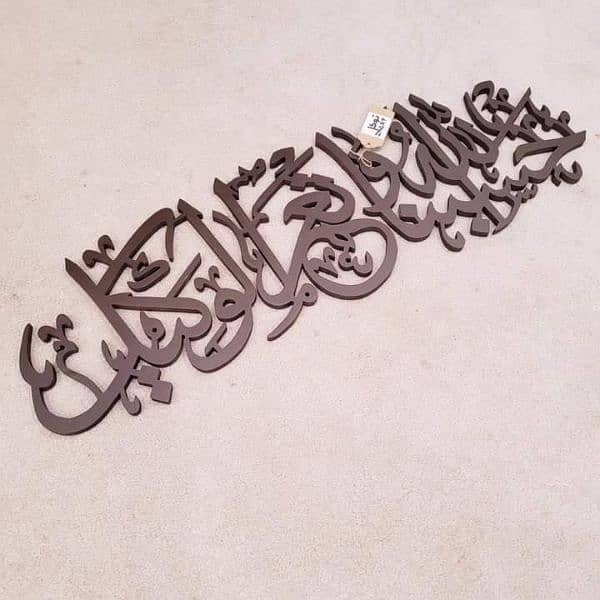 حسبنا الله ونعم الوكيل
توكل